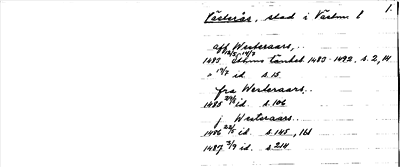 1.
Västerås, stad i Västm. l
aff Westeraars,..
1483 12/5, 14/7 Sthms tänkeb 1483-1492. s. 2, 14
" 17/7 id. s. 15
fra Westeraars..
1485 29/8 id. s. 106
j Westeraars..
1486 22/5 id. s. 145, 161
1487 2/7 id. s. 214